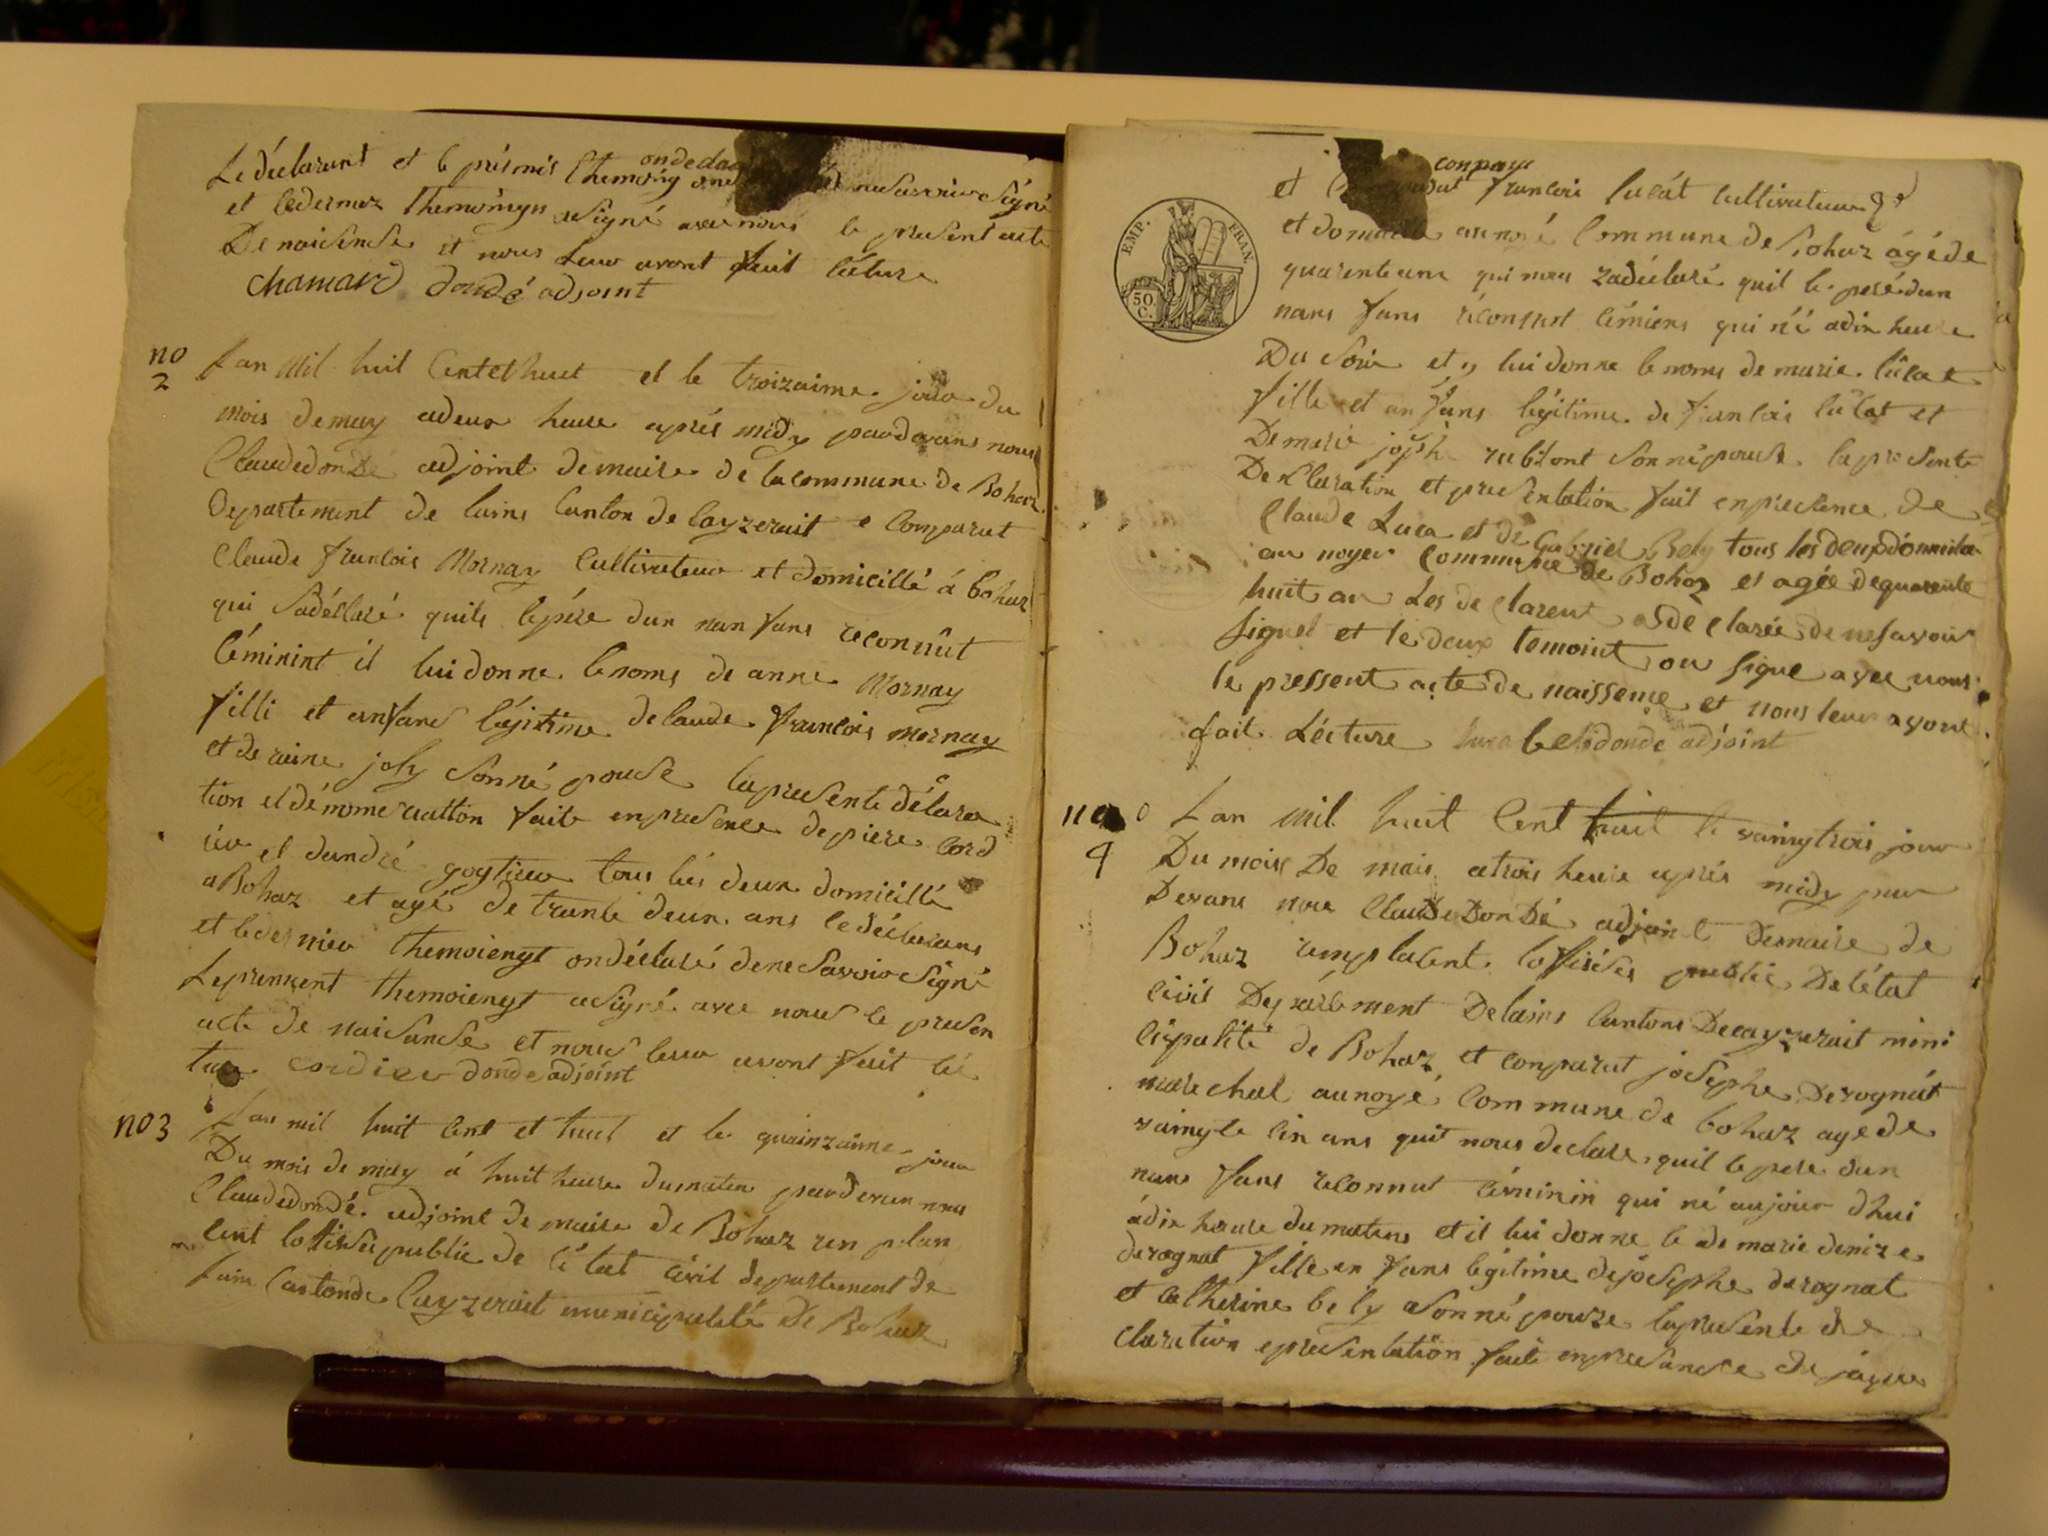 ondecla
Le déclarant et le prémis themoing ne savoir signé
et ledernier themoingn a signé avec nous le present acte
De naisence et nous leur avont fait lecture
chamard dondé adjoint
no
2
Lan Mil huit Cent et huit et le troizaime jour du
mois de may a deux heure aprés midy pardevans nous
Claude dondé adjoint de maire de la commune de Bohaz
Departement de lains Canton de Cayzeriait e Comparut
Claude francois Mornay Cultivateur et domicillé á bohaz
qui Sa déclaré quils lepére dun nan fans reconnut
féminint il lui donne lenoms de anne Mornay
filli et anfans légitime de laude francois mornay
et de reine joly Sonné pouse la presente déclara
tion et dénome nattion faite en presence de piere Cord
ier et dandré gogtier tous lés deux domicillé
a Bohaz et agé de trante deux ans le déclarans
et ledernier themoiengt on déclaré dene Savoir Signé
Le premient themoiengt a signé avec nous le presen
acte de naisance et nous leur avont fait lé
ture cordier donde adjoint
no 3
Lan mil huit Cent et huit et le quainzaime jour
Du mois de may á huit heure du maten pardevan nous
Claude dondé adjoint de maire de Bohaz ren plan
cent loffisié public de létat civil departement de
lain Canton de Cayzeriait municipalité de Bohaz
conpary
et francois lucat cultivateur
et domicillé au noyé Commune de Bohaz ágé de
quarente ans qui nous za déclaré quil le peré dun
nans fans réconnut féminin qui né a dix heure
Du Soir et y lui donne le noms de marie lucat
fille et an fans légitime de francois lucat et
De marie josph rublont Sonné pouse la presente
Declaration et presentation fait en presence de
Claude Luca et de Gabriel Bely tous les deux domicilie
au noyer commune de Bohaz et agée de quarente
huit an Les declarent a declarée de ne savoir
signer et le deux temoint on signe avec nous
le pressent acte de naissence et nous leur avont
fait Lecture luca beli donde adjoint
EMP. FRAN.
50
C.
no
4
Lan mil huit Cent huit le vaingtrois jour
Du mois De mais a trois heure aprés midy par
Devans nous Claude Dondé adjoint Demaire de
Bohaz remplacent loffisiés public De létat
civil Departement De lains Cantons De cayzeriait mini
cipalité de Bohaz et conparut josephe Derognat
marechal au noyé Commune de bohaz age de
vaingte cin ans quit nous declare quil le pere dun
nans fans reconnut féminin qui né aujour dhui
á dix heure du matens et il lui donne le de marie denize
derognat fille en fans légitime de josephe derognat
et catherine bely a Sonné pouze la presente de
claration e presentation fait en presance de jaque